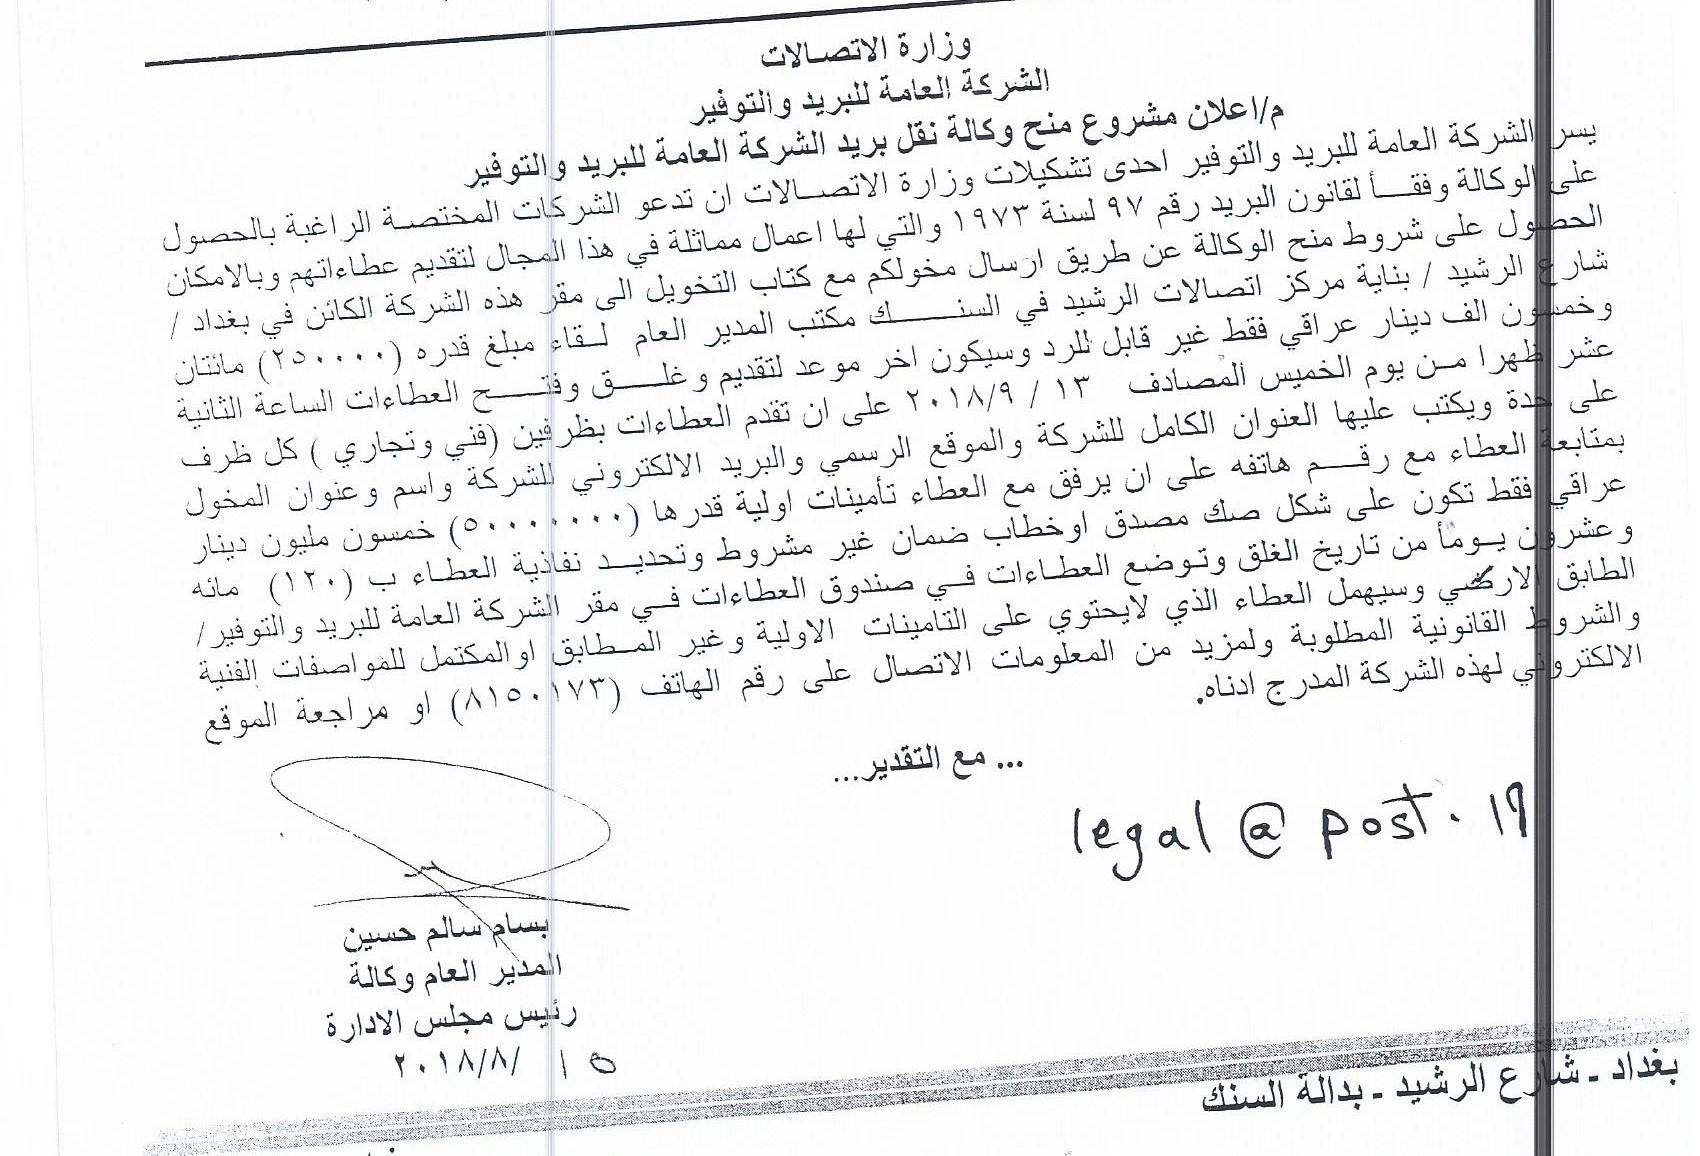 وزارة الاتصالات
الشركة العامة للبريد والتوفير
م/اعلان مشروع منح وكالة نقل بريد الشركة العامة للبريد والتوفير
يسر الشركة العامة للبريد والتوفير احدى تشكيلات وزارة الاتصالات ان تدعو الشركات المختصة الراغبة بالحصول
على الوكالة وفقأ لقانون البريد رقم ٩٧ لسنة ١٩٧٣ والتي لها اعمال مماثلة في هذا المجال لتقديم عطاءاتهم وبالامكان
الحصول على شروط منح الوكالة عن طريق ارسال مخولكم مع كتاب التخويل الى مقر هذه الشركة الكائن في بغداد /
شارع الرشيد / بناية مركز اتصالات الرشيد في السنك مكتب المدير العام لقاء مبلغ قدره (٢٥٠٠٠٠) مائتان
وخمسون الف دينار عراقي فقط غير قابل للرد وسيكون اخر موعد لتقديم وغلق وفتح العطاءات الساعة الثانية
عشر ظهرا من يوم الخميس المصادف ١٣ / ٢٠١٨/٩ على ان تقدم العطاءات بظرفين (فني وتجاري ) كل ظرف
على حدة ويكتب عليها العنوان الكامل للشركة والموقع الرسمي والبريد الالكتروني للشركة واسم وعنوان المخول
بمتابعة العطاء مع رقم هاتفه على ان يرفق مع العطاء تأمينات اولية قدرها (٥٠٠٠٠٠٠٠) خمسون مليون دينار
عراقي فقط تكون على شكل صك مصدق اوخطاب ضمان غير مشروط وتحديد نفاذية العطاء ب (١٢٠) مائه
وعشرون يومأ من تاريخ الغلق وتوضع العطاءات في صندوق العطاءات في مقر الشركة العامة للبريد والتوفير/
الطابق الارضي وسيهمل العطاء الذي لايحتوي على التامينات الاولية وغير المطابق اوالمكتمل للمواصفات الفنية
والشروط القانونية المطلوبة ولمزيد من المعلومات الاتصال على رقم الهاتف (٨١٥٠١٧٣) او مراجعة الموقع
الالكتروني لهذه الشركة المدرج ادناه.
... مع التقدير...
legal @ post. iq
بسام سالم حسين
المدير العام وكالة
رئيس مجلس الادارة
١٥ /٢٠١٨/٨
بغداد ـ شارع الرشيد ـ بدالة السنك